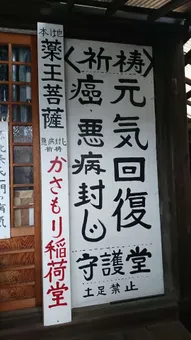 〈祈祷〉
元気回復
癌・悪病封じ
守護堂
土足禁止
本地
薬王菩薩
悪病封じ
祈祷
かさもり稲荷堂